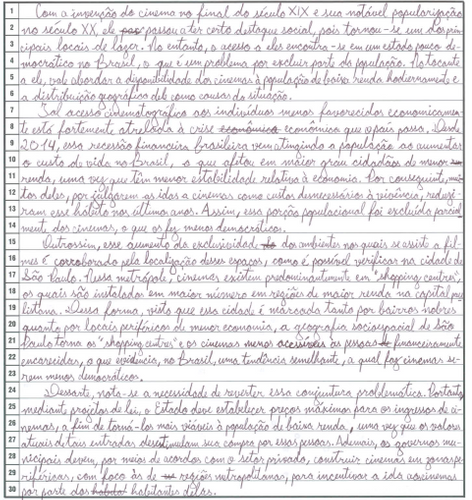 1 Com a invenção do cinema no final do século XIX e sua notável popularização
2 no século XX, ele passou a ter certo destaque social, pois tornou-se um dos prin-
3 cipais locais de lazer. No entanto, o acesso a eles encontra-se em um estado pouco de-
4 mocrático no Brasil, o que é um problema por excluir parte da população. No tocante
5 a ele, vale abordar a disponibilidade dos cinemas à população de baixa renda hodiernamente e
6 a distribuição geográfica deles como causas da situação.
7 Tal acesso cinematográfico aos indivíduos menos favorecidos economicamen-
8 te está fortemente atrelado à crise econômica que o país passa. Desde
9 2014, essa recessão financeira brasileira vem atingindo a população ao aumentar
10 o custo de vida no Brasil, o que afetou em maior grau cidadãos de menor
11 renda, uma vez que têm menor estabilidade relativa à economia. Por conseguinte, mui-
12 tos deles, por julgarem as idas a cinemas como custos desnecessários à vivência, reduzi-
13 ram esse hábito nos últimos anos. Assim, essa porção populacional foi excluída parcial-
14 mente dos cinemas, o que os fez menos democráticos.
15 Outrossim, esse aumento da exclusividade dos ambientes nos quais se assiste a fil-
16 mes é corroborado pela localização desses espaços, como é possível verificar na cidade de
17 São Paulo. Nessa metrópole, cinemas existem predominantemente em "shopping centres",
18 os quais são instalados em maior número em regiões de maior renda na capital pau-
19 listana. Dessa forma, visto que essa cidade é marcada tanto por bairros nobres
20 quanto por locais periféricos de menor economia, a geografia socioespacial de São
21 Paulo torna os "shopping centres" e os cinemas menos acessíveis às pessoas financeiramente
22 encarecidas, o que evidencia, no Brasil, uma tendência semelhante, a qual faz cinemas se-
23 rem menos democráticos.
24 Dessarte, nota-se a necessidade de reverter essa conjuntura problemática. Portanto,
25 mediante projetos de lei, o Estado deve estabelecer preços máximos para os ingressos de ci-
26 nemas, a fim de torná-los mais viáveis à população de baixa renda, uma vez que os valores
27 atuais de tais entradas desestimulam sua compra por essas pessoas. Ademais, os governos mu-
28 nicipais devem, por meio de acordos com o setor privado, construir cinemas em zonas pe-
29 riféricas, com foco às de regiões metropolitanas, para incentivar a ida aos cinemas
30 por parte dos habitantes delas.